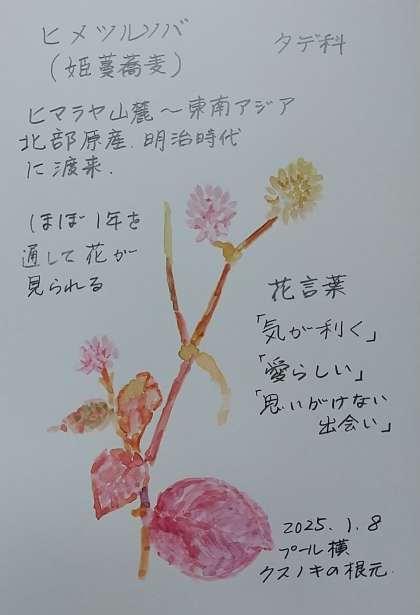 ヒメツルソバ タデ科
(姫蔓蕎麦)
ヒマラヤ山麓〜東南アジア
北部原産.明治時代
に渡来.
ほぼ1年を
通して花が
見られる
花言葉
「気が利く」
「愛らしい」
「思いがけない
出会い」
2025.1.8
プール横
クスノキの根元.